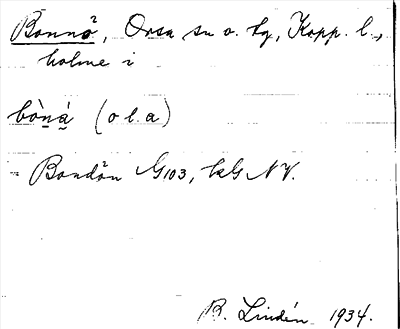 Bonnö, Orsa sn o. tg, Kopp. l.,
holme i
bòná (o l. a)
Bondön G103, kG NV.
B. Lindén 1934.